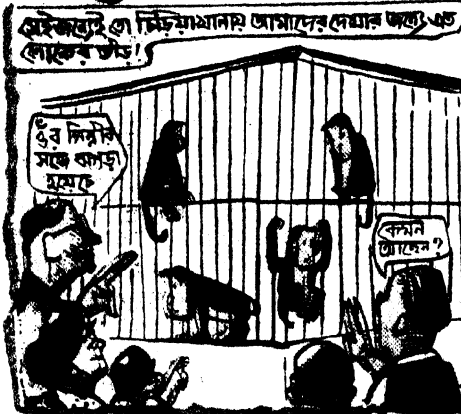 সেইজন্যেই তো চিড়িয়াখানায় আমাদের দেখার জন্যে এত
লোকের ভীড়!
ওঁর গিন্নীর
সঙ্গে ঝগড়া
হয়েছে
কেমন
আছেন?